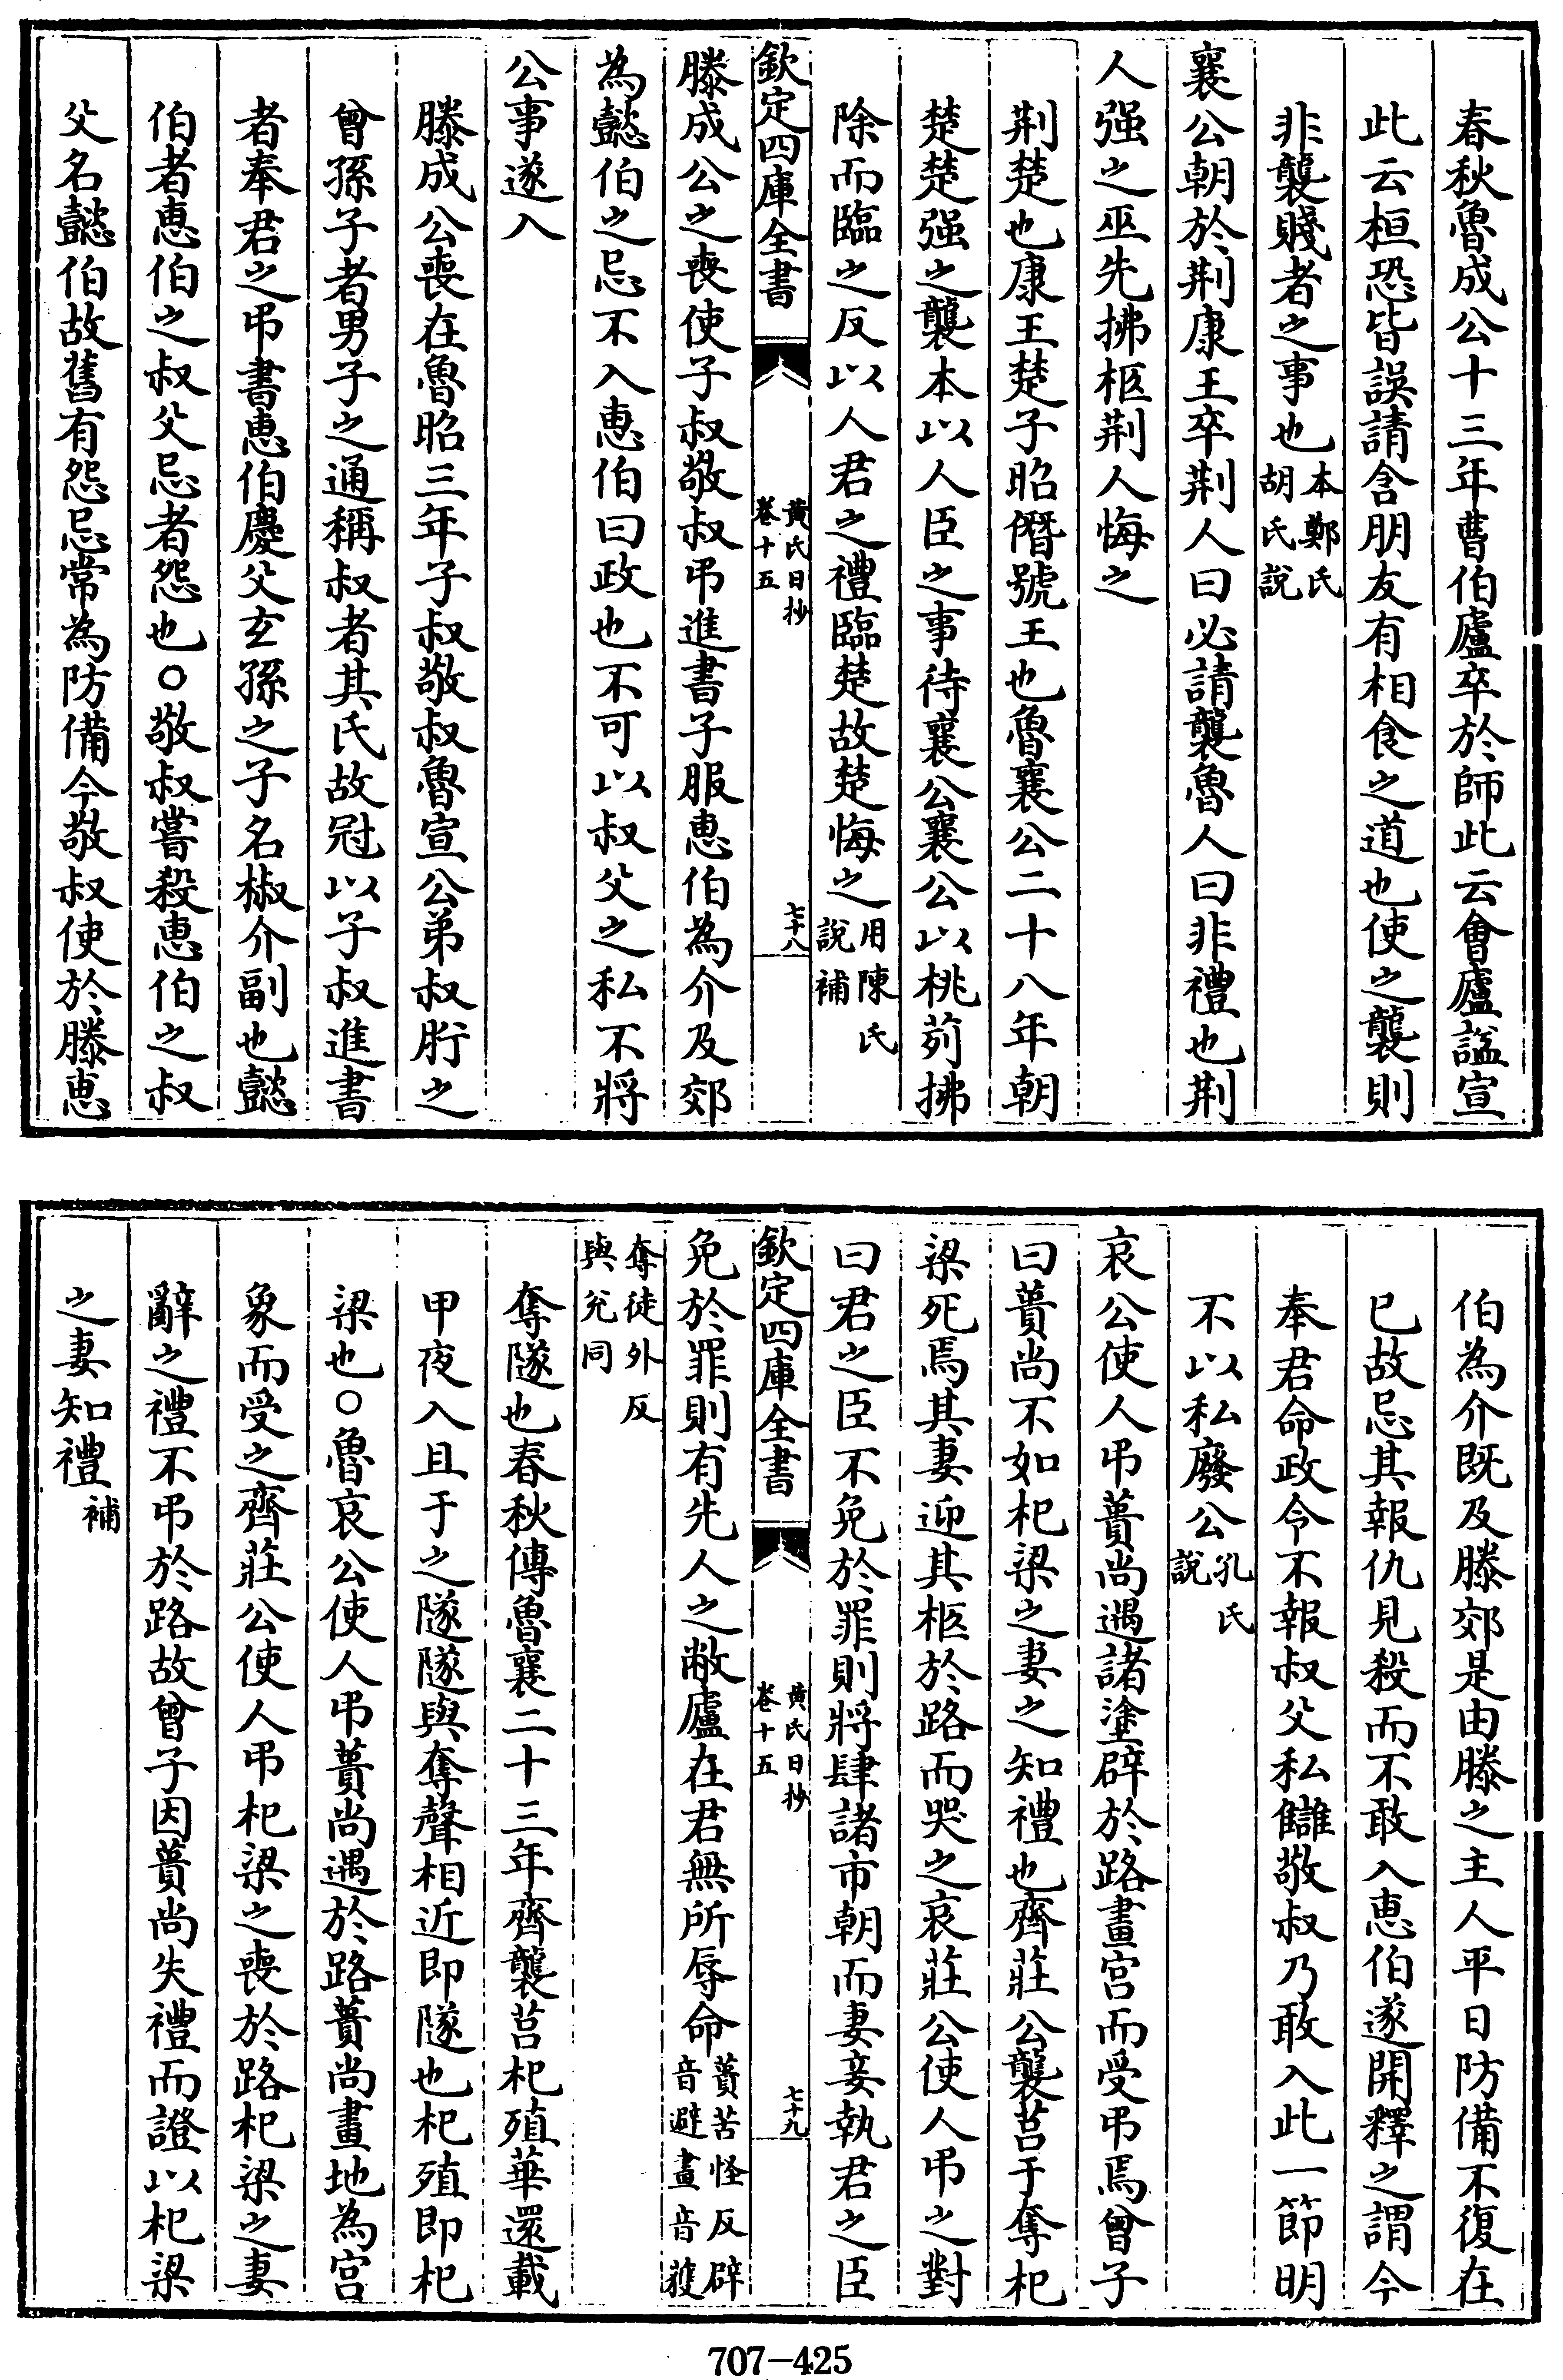 春秋魯成公十三年曹伯廬卒於師此云會廬諡宣
此云桓恐皆誤請含朋友有相食之道也使之襲則
非襲賤者之事也本鄭氏胡氏說
襄公朝於荆康王卒荆人曰必請襲魯人曰非禮也荆
人强之巫先拂柩荆人悔之
荆楚也康王楚子昭僭號王也魯襄公二十八年朝
楚楚强之襲本以人臣之事待襄公襄公以桃茢拂
除而臨之反以人君之禮臨楚故楚悔之用陳氏說補
欽定四庫全書
黄氏日抄
卷十五
七十八
滕成公之喪使子叔敬叔弔進書子服惠伯為介及郊
為懿伯之忌不入惠伯曰政也不可以叔父之私不將
公事遂入
滕成公喪在魯昭三年子叔敬叔魯宣公弟叔肸之
曾孫子者男子之通稱叔者其氏故冠以子叔進書
者奉君之弔書惠伯慶父玄孫之子名椒介副也懿
伯者惠伯之叔父忌者怨也○敬叔嘗殺惠伯之叔
父名懿伯故舊有怨忌常為防備今敬叔使於滕惠
伯為介既及滕郊是由滕之主人平日防備不復在
已故忌其報仇見殺而不敢入惠伯遂開釋之謂今
奉君命政令不報叔父私讎敬叔乃敢入此一節明
不以私廢公孔氏說
哀公使人弔蕢尚遇諸塗辟於路畫宫而受弔焉曾子
曰蕢尚不如杞梁之妻之知禮也齊莊公襲莒于奪杞
梁死焉其妻迎其柩於路而哭之哀莊公使人弔之對
曰君之臣不免於罪則將肆諸市朝而妻妾執君之臣
欽定四庫全書
黄氏日抄
卷十五
七十九
免於罪則有先人之敝廬在君無所辱命蕢苦怪反辟音避畫音獲
奪徒外反與兊同
奪隧也春秋傳魯襄二十三年齊襲莒杞殖華還載
甲夜入且于之隧隧與奪聲相近即隧也杞殖即杞
梁也○魯哀公使人弔蕢尚遇於路蕢尚畫地為宫
象而受之齊莊公使人弔杞梁之喪於路杞梁之妻
辭之禮不弔於路故曾子因蕢尚失禮而證以杞梁
之妻知禮補
707-425